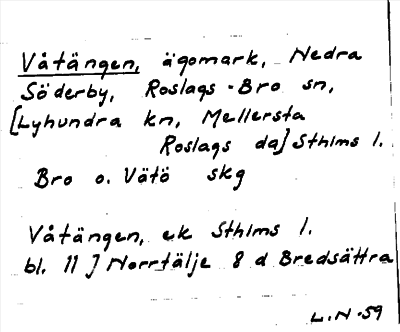 Våtängen, ägomark, Nedra
Söderby, Roslags-Bro sn,
[Lyhundra kn, Mellersta
Roslags da] Sthlms l.
Bro o. Vätö skg
Våtängen, ek Sthlms l.
bl. 11 J Norrtälje 8 d Bredsättra
L.N-59